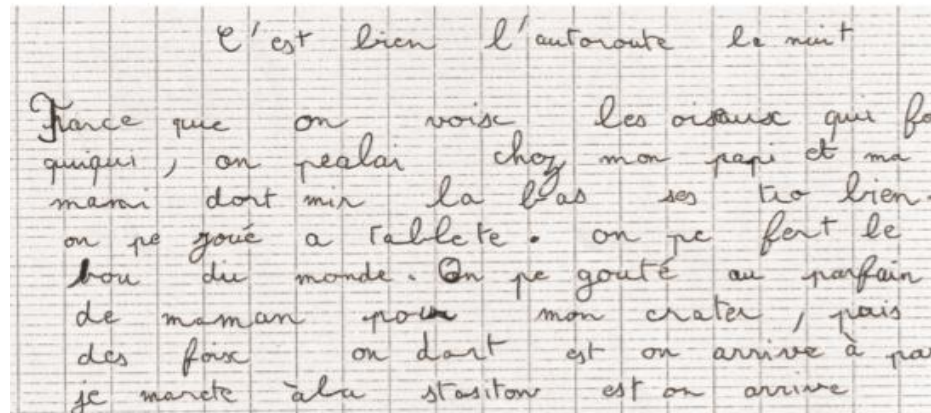 C'est bien l'autoroute la nuit
Parce que on voix les oiseaux qui fo
quiqui, on pealai chez mon papi et ma
mami dort mir la bas ses tro bien.
on pe joué a tablete. on pe fert le
bou du monde. On pe gouté au parfain
de maman pour mon crater, pais
des foix on dort est on arrive à pa
je marete àla stasiton est on arrive